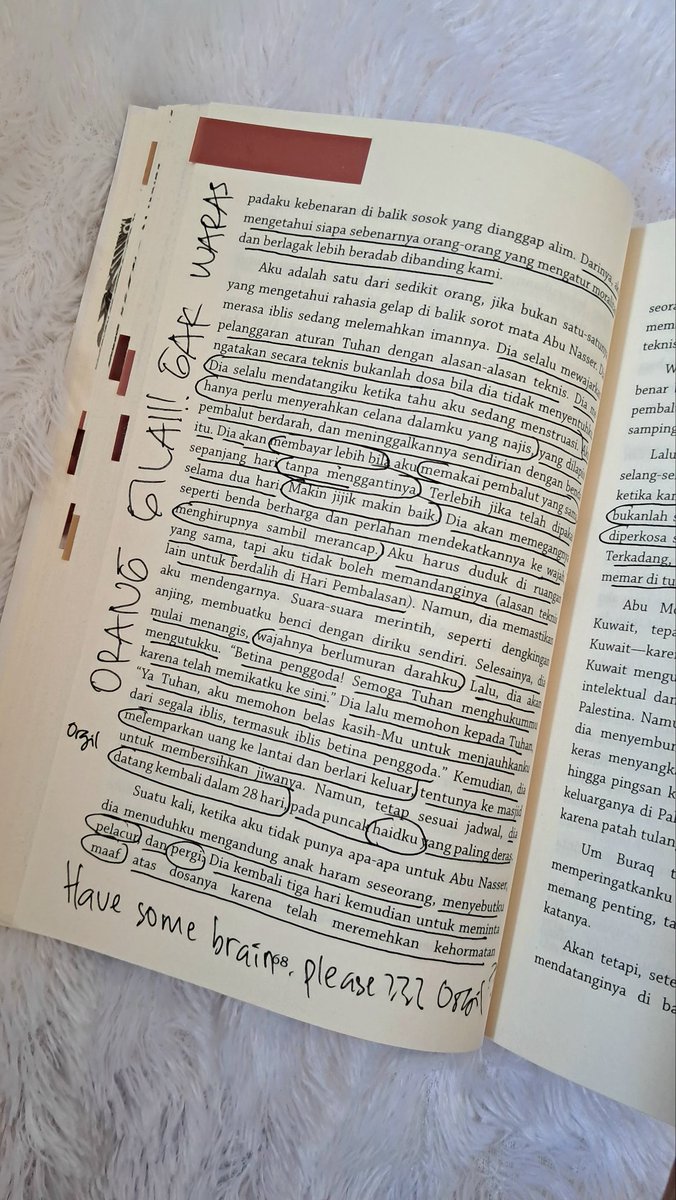 padaku kebenaran di balik sosok yang dianggap alim. Darinya,
mengetahui siapa sebenarnya orang-orang yang mengatur
dan berlagak lebih beradab dibanding kami.
Aku adalah satu dari sedikit orang, jika bukan
yang mengetahui rahasia gelap di balik sorot mata Abu Nasser.
merasa iblis sedang melemahkan imannya. Dia selalu
pelanggaran aturan Tuhan dengan alasan-alasan teknis. Dia
ngatakan secara teknis bukanlah dosa bila dia tidak
Dia selalu mendatangiku ketika tahu aku sedang menstruasi.
hanya perlu menyerahkan celana dalamku yang najis, yang
pembalut berdarah, dan meninggalkannya sendirian dengan
itu. Dia akan membayar lebih bila aku memakai pembalut yang
sepanjang hari tanpa menggantinya. Terlebih jika telah
selama dua hari. Makin jijik makin baik. Dia akan
seperti benda berharga dan perlahan mendekatkannya ke
menghirupnya sambil merancap. Aku harus duduk di ruangan
yang sama, tapi aku tidak boleh memandanginya (alasan
lain untuk berdalih di Hari Pembalasan). Namun, dia memastikan
aku mendengarnya. Suara-suara merintih, seperti dengkingan
anjing, membuatku benci dengan diriku sendiri. Selesainya, dia
mulai menangis, wajahnya berlumuran darahku. Lalu, dia akan
mengutukku. "Betina penggoda! Semoga Tuhan menghukummu
karena telah memikatku ke sini." Dia lalu memohon kepada Tuhan
"Ya Tuhan, aku memohon belas kasih-Mu untuk menjauhkanku
dari segala iblis, termasuk iblis betina penggoda." Kemudian, dia
melemparkan uang ke lantai dan berlari keluar, tentunya ke masjid
untuk membersihkan jiwanya. Namun, tetap sesuai jadwal, dia
datang kembali dalam 28 hari, pada puncak haidku yang paling deras.
Suatu kali, ketika aku tidak punya apa-apa untuk Abu Nasser,
dia menuduhku mengandung anak haram seseorang, menyebutku
pelacur, dan pergi. Dia kembali tiga hari kemudian untuk meminta
maaf atas dosanya karena telah meremehkan kehormatan
68
ORANG GILA!!! GAK WARAS
Orgil
Have some brain, please ??? Orgil
mem
teknis
W
benar
pembal
samping
Lalu
selang-se
ketika
bukanlah
diperkosa
Terkadang,
memar di
Abu
Kuwait,
Kuwait—
Kuwait
intelektual
Palestina.
dia
keras
hingga pingsan
keluarganya di
karena patah
Um Buraq
memperingatkanku
memang penting,
katanya.
Akan tetapi,
mendatanginya di